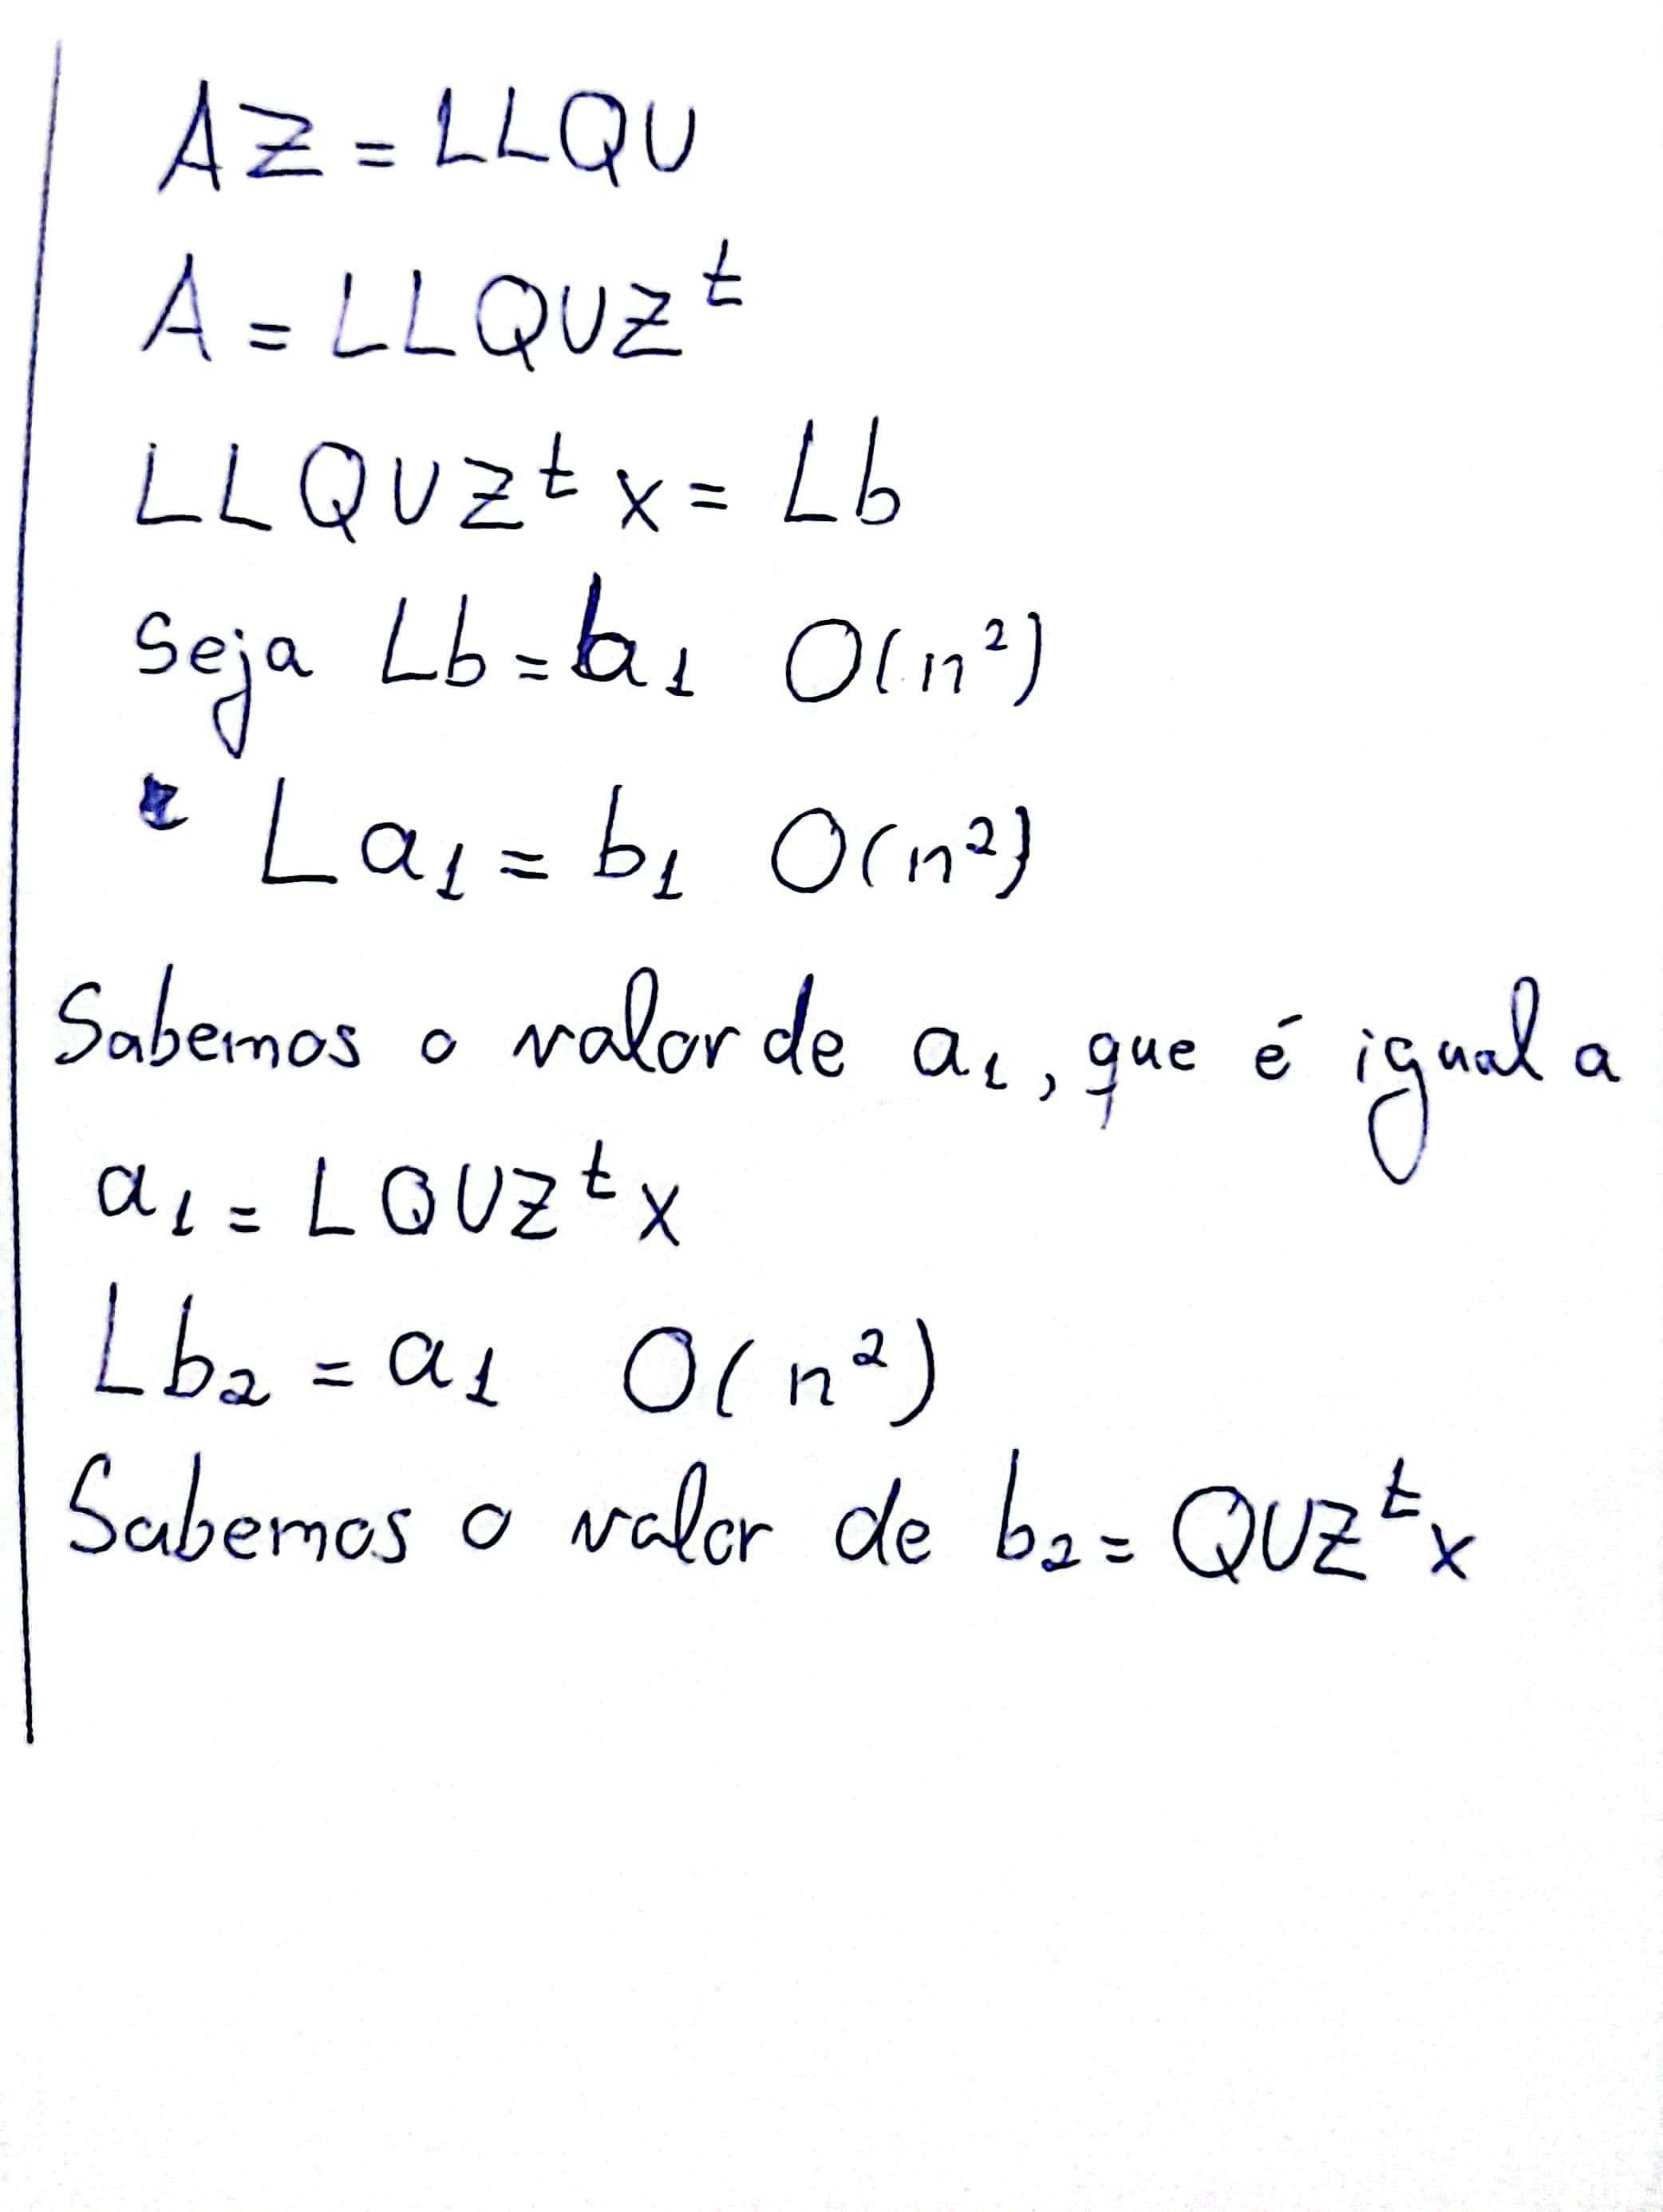 AZ = LLQU
A = LLQUZᵗ
LLQUZᵗ x = Lb
Seja Lb = b₁ O(n²)
L a₁ = b₁ O(n²)
Sabemos o valor de a₁, que é igual a
a₁ = LQUZᵗ x
Lb₂ = a₁ O(n²)
Sabemos o valor de b₂ = QUZᵗ x